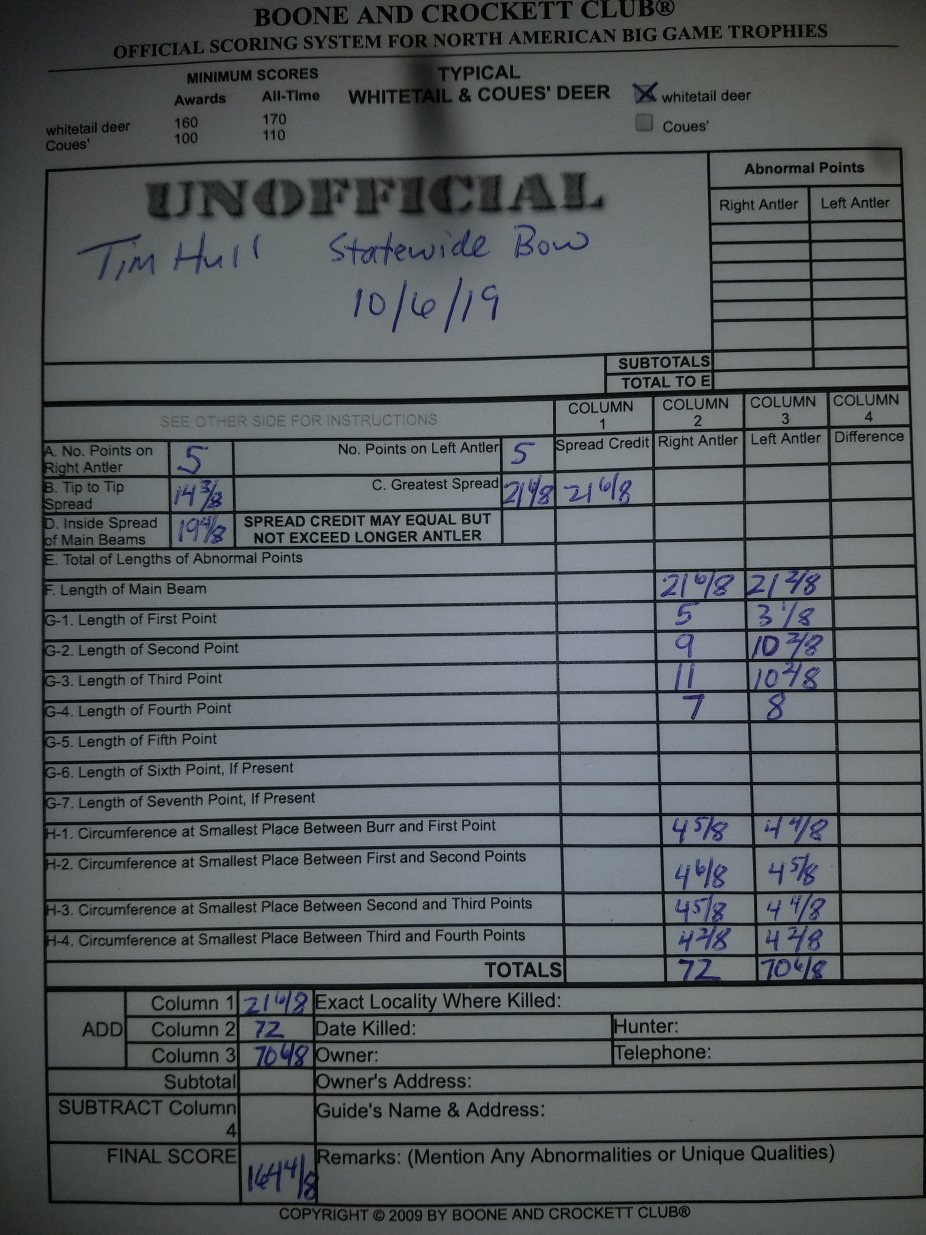 BOONE AND CROCKETT CLUB®
OFFICIAL SCORING SYSTEM FOR NORTH AMERICAN BIG GAME TROPHIES
MINIMUM SCORES
Awards All-Time
whitetail deer 160 170
Coues' 100 110
TYPICAL
WHITETAIL & COUES' DEER
X whitetail deer
Coues'
UNOFFICIAL
Tim Hull Statewide Bow
10/6/19
Abnormal Points
Right Antler Left Antler
SUBTOTALS
TOTAL TO E
SEE OTHER SIDE FOR INSTRUCTIONS
COLUMN 1 COLUMN 2 COLUMN 3 COLUMN 4
A. No. Points on Right Antler 5 No. Points on Left Antler 5 Spread Credit Right Antler Left Antler Difference
B. Tip to Tip Spread 14 3/8 C. Greatest Spread 21 6/8 21 6/8
D. Inside Spread of Main Beams 19 4/8 SPREAD CREDIT MAY EQUAL BUT NOT EXCEED LONGER ANTLER
E. Total of Lengths of Abnormal Points
F. Length of Main Beam 21 6/8 21 2/8
G-1. Length of First Point 5 3 1/8
G-2. Length of Second Point 9 10 2/8
G-3. Length of Third Point 11 10 2/8
G-4. Length of Fourth Point 7 8
G-5. Length of Fifth Point
G-6. Length of Sixth Point, If Present
G-7. Length of Seventh Point, If Present
H-1. Circumference at Smallest Place Between Burr and First Point 4 5/8 4 4/8
H-2. Circumference at Smallest Place Between First and Second Points 4 6/8 4 5/8
H-3. Circumference at Smallest Place Between Second and Third Points 4 5/8 4 4/8
H-4. Circumference at Smallest Place Between Third and Fourth Points 4 2/8 4 2/8
TOTALS 72 70 6/8
ADD
Column 1 21 6/8 Exact Locality Where Killed:
Column 2 72 Date Killed: Hunter:
Column 3 70 6/8 Owner: Telephone:
Subtotal Owner's Address:
SUBTRACT Column 4 Guide's Name & Address:
FINAL SCORE 164 4/8 Remarks: (Mention Any Abnormalities or Unique Qualities)
COPYRIGHT © 2009 BY BOONE AND CROCKETT CLUB®